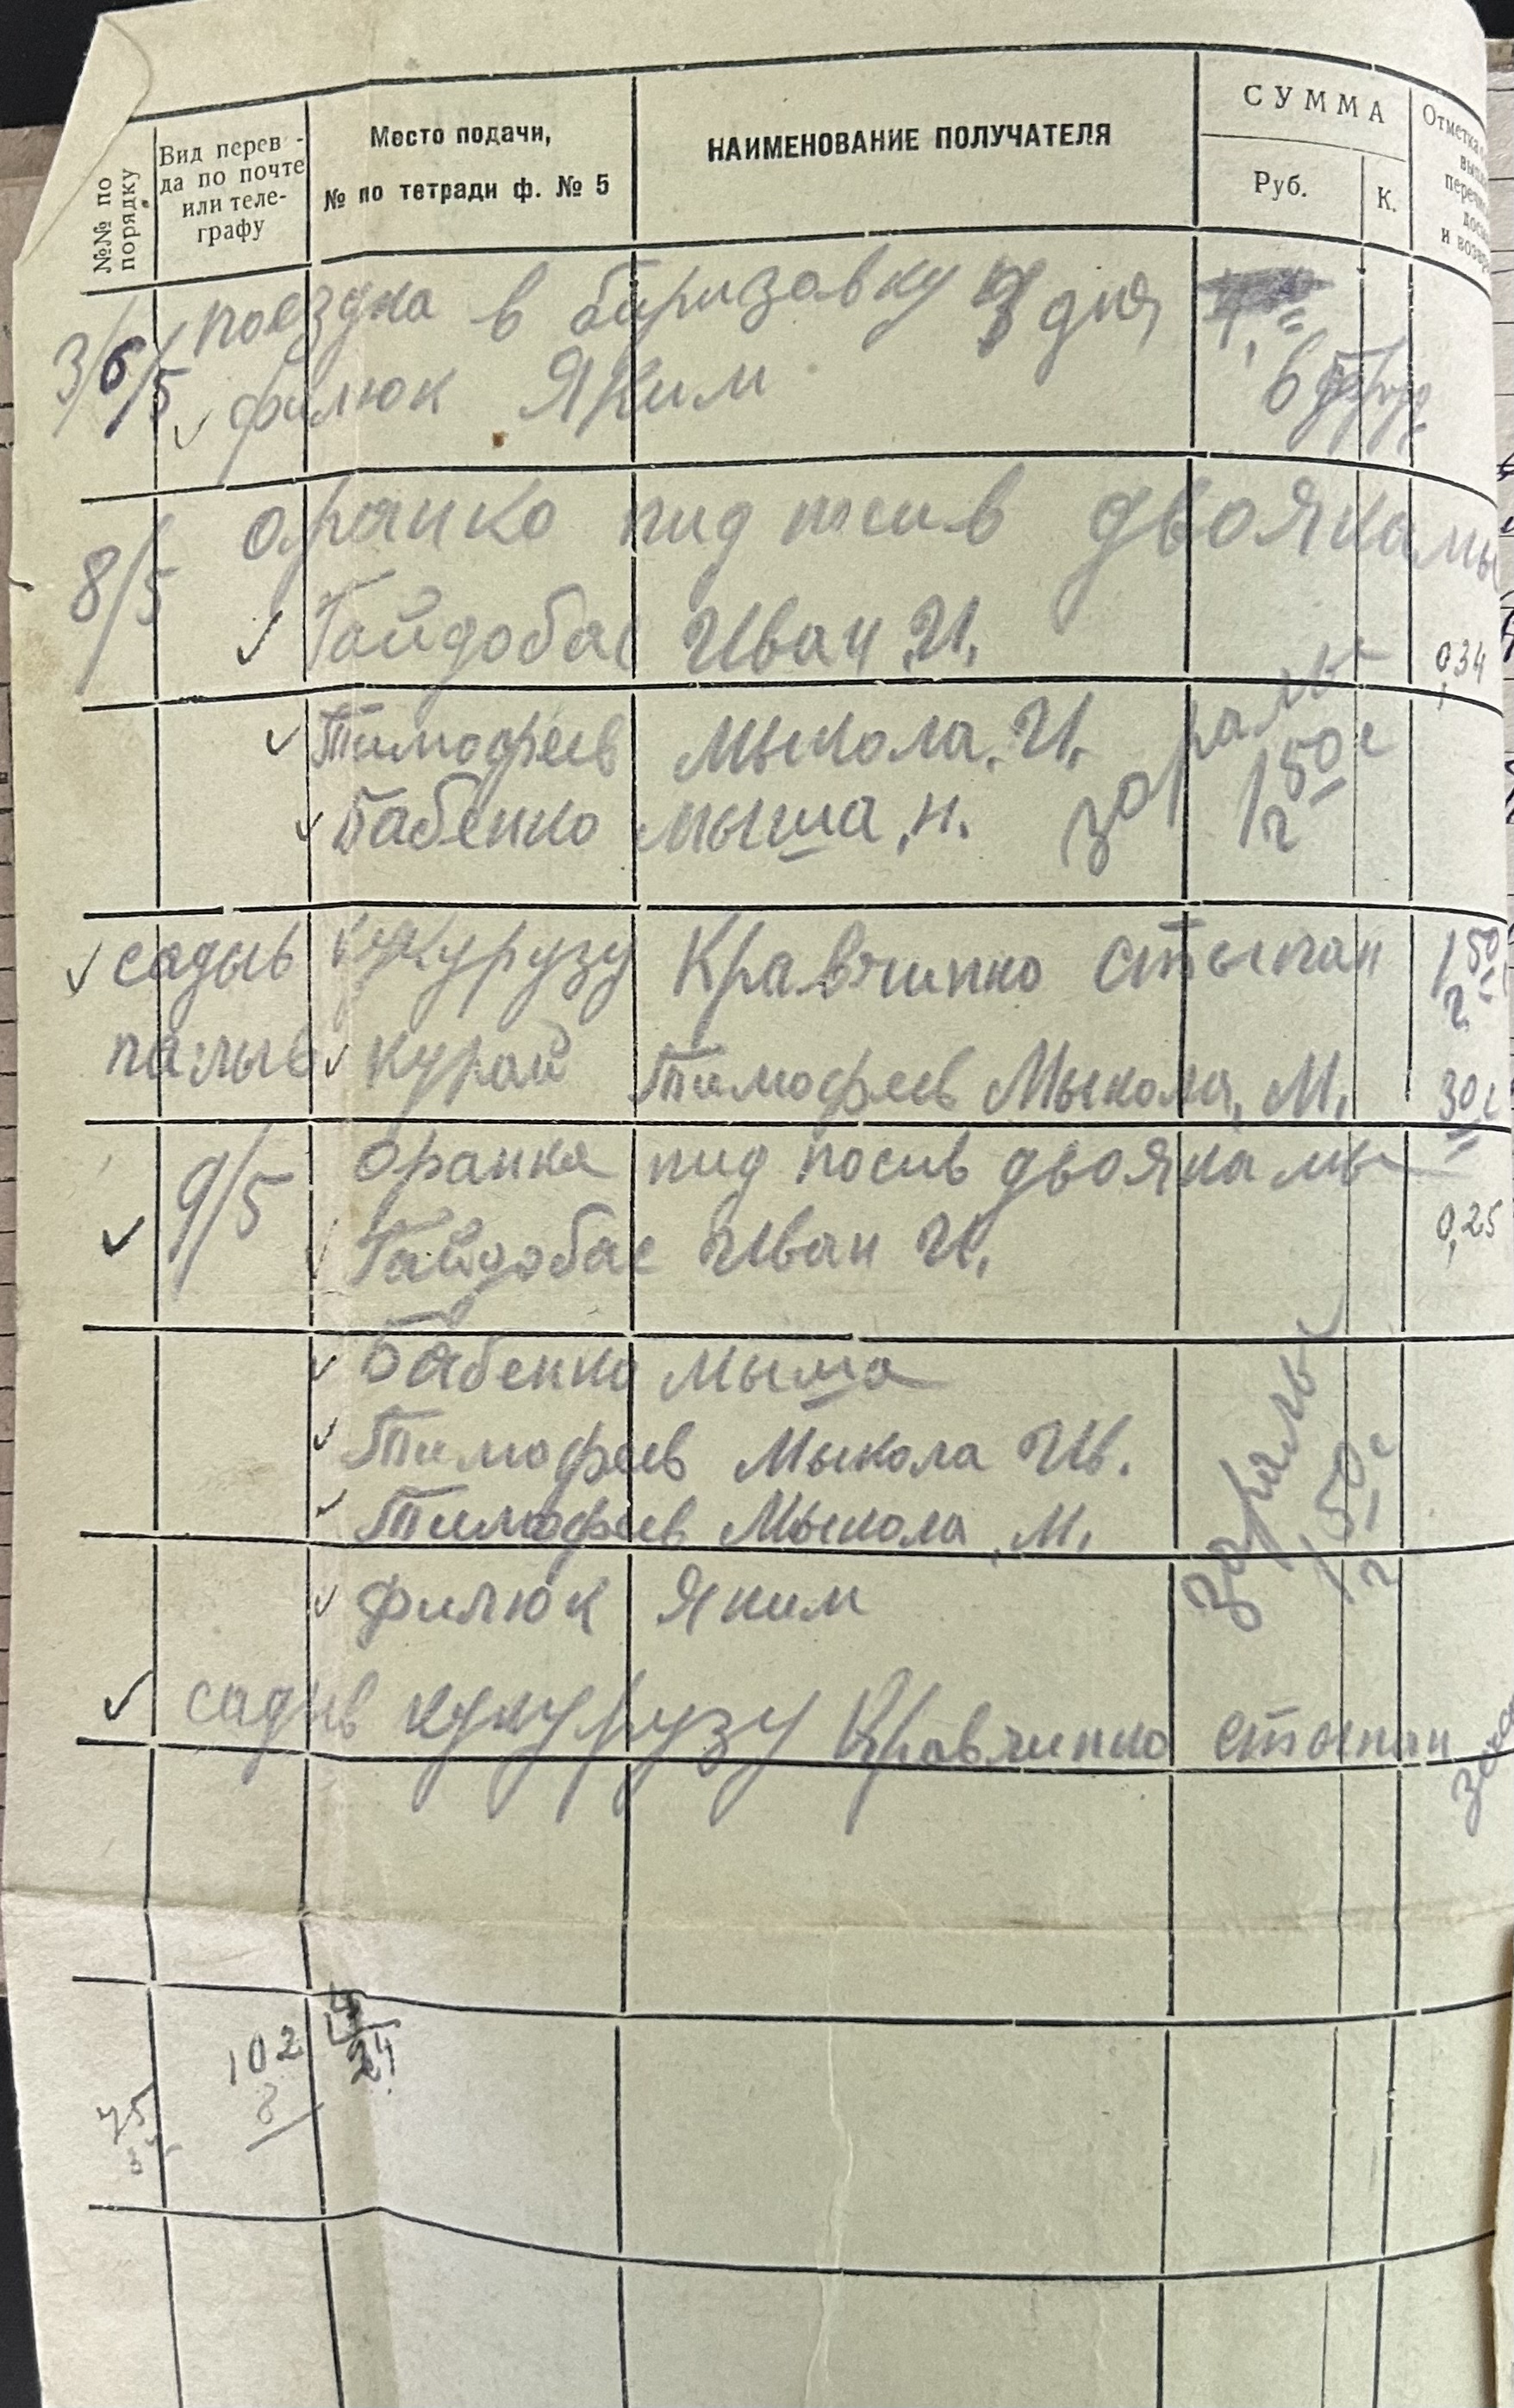 №№ по порядку
Вид перев-
да по почте
или теле-
графу
Место подачи,
№ по тетради ф. № 5
НАИМЕНОВАНИЕ ПОЛУЧАТЕЛЯ
СУММА
Руб.
К.
Отметка
3/6/5 поездка в Биризовку дня
Филюк Яким
8/5 оранко пид посив двоякамы
Гайдобас Иван И. 0,34
Тимофеев Мыкола. И. заралы
Бабенко мыша, н. 1/2 50 с
садыв кукурузу Кравчинко стыпан 1/2 50
палыв курай Тимофеев Мыкола, М. 30 с
9/5 оранка пид посив двоякамы
Гайдобас Иван И. 0,25
Бабенко мыша
Тимофеев Мыкола Ив. заралы
Тимофеев Мыкола, М. 1/2 50 с
Филюк Яким
садыв кукурузу Кравчинко стыпан
102
24
75